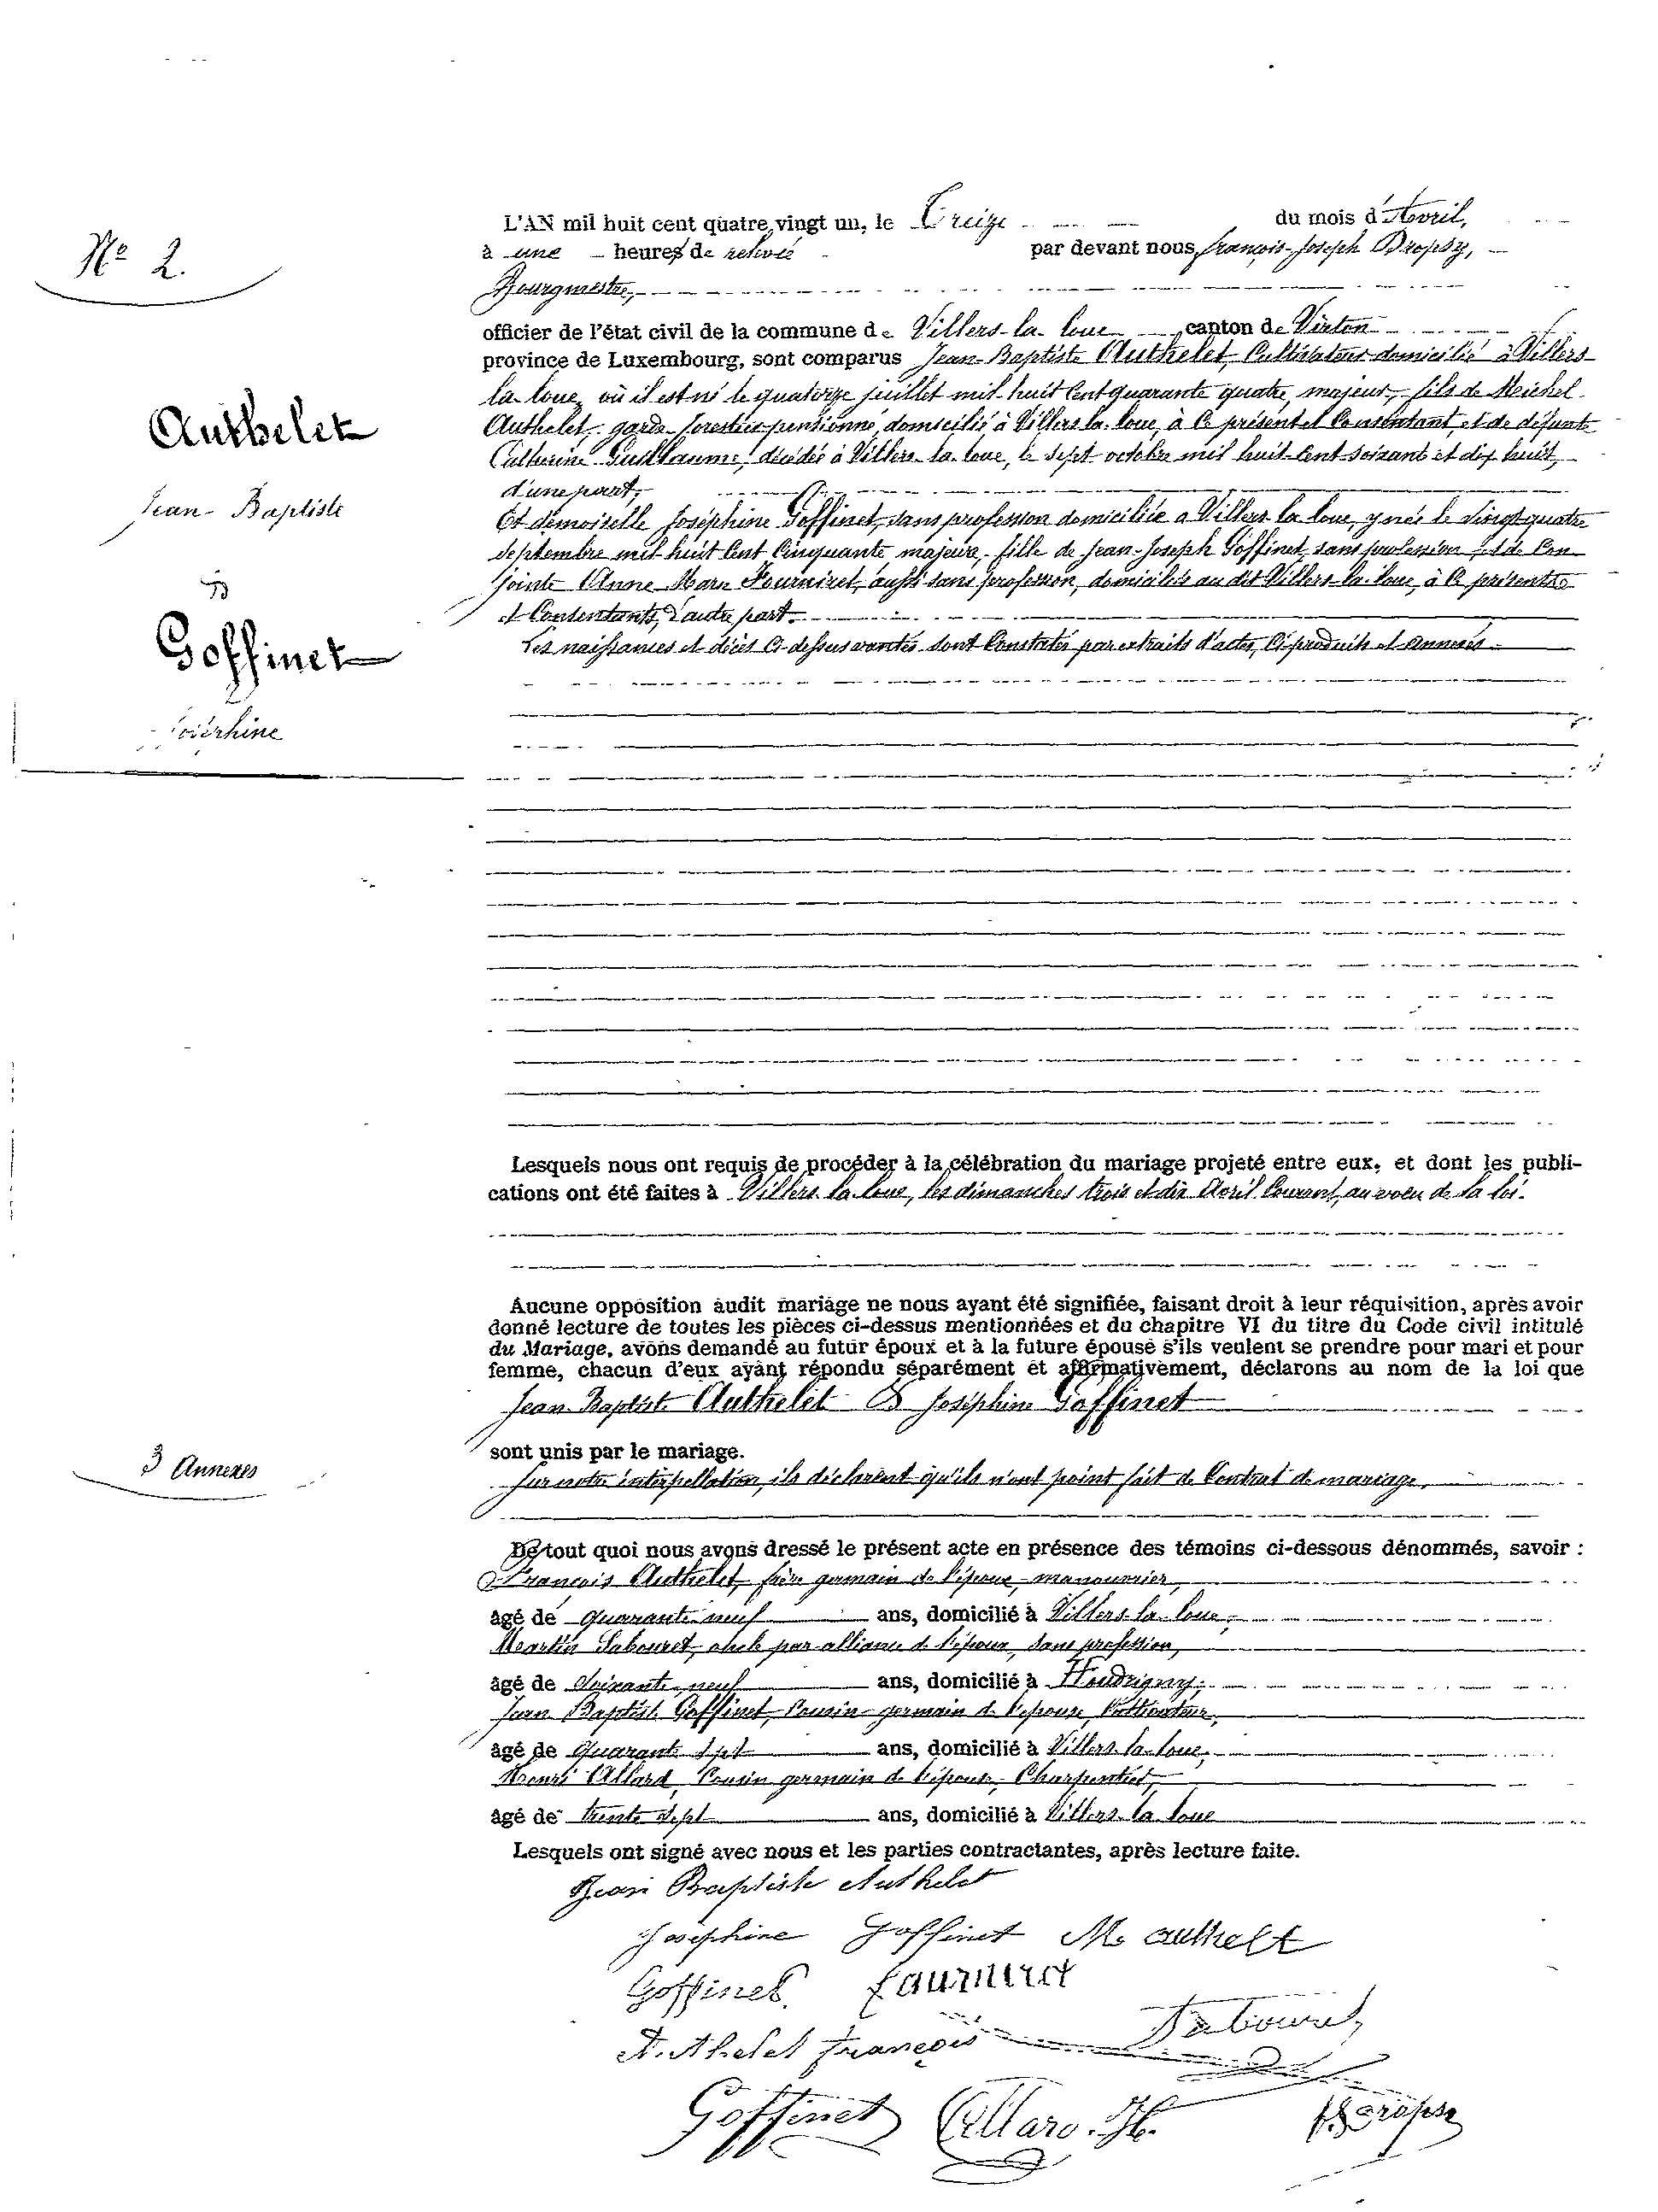 N° 2.
L'AN mil huit cent quatre vingt un, le Treize du mois d'Avril,
à une heures de relevée par devant nous, François-Joseph Dropsy,
Bourgmestre,
officier de l'état civil de la commune de Villers-la-loue canton de Virton
province de Luxembourg, sont comparus Jean-Baptiste Authelet, Cultivateur domicilié à Villers-
la-loue, où il est né le quatorze juillet mil huit Cent quarante quatre, majeur, fils de Michel
Authelet, garde forestier pensionné, domicilié à Villers-la-loue, à Ce présent et Consentant, et de défunte
Catherine Guillaume, décédée à Villers-la-loue, le sept octobre mil huit-Cent-soixante et dix huit,
d'une part;
Et demoiselle Joséphine Goffinet, sans profession domiciliée à Villers-la-loue, y née le vingt-quatre
septembre mil huit Cent Cinquante, majeure, fille de Jean-Joseph Goffinet, sans profession et de Con-
jointe Anne Marie Fourniret, aussi sans profession, domiciliés au dit Villers-la-loue, à Ce présents
et Consentants, d'autre part.
Les naissances et décès Ci-dessus vantés sont Constatés par extraits d'actes, Ci-produits et annexés.
Authelet
Jean-Baptiste
&
Goffinet
Joséphine
Lesquels nous ont requis de procéder à la célébration du mariage projeté entre eux, et dont les publi-
cations ont été faites à Villers-la-loue, les dimanches trois et dix Avril Courant, au vœu de la loi.
Aucune opposition audit mariage ne nous ayant été signifiée, faisant droit à leur réquisition, après avoir
donné lecture de toutes les pièces ci-dessus mentionnées et du chapitre VI du titre du Code civil intitulé
du Mariage, avons demandé au futur époux et à la future épouse s'ils veulent se prendre pour mari et pour
femme, chacun d'eux ayant répondu séparément et affirmativement, déclarons au nom de la loi que
Jean-Baptiste Authelet & Joséphine Goffinet
sont unis par le mariage.
3 Annexes
Sur notre interpellation, ils déclarent qu'ils n'ont point fait de Contrat de mariage.
De tout quoi nous avons dressé le présent acte en présence des témoins ci-dessous dénommés, savoir :
François Authelet, frère germain de l'époux, manouvrier,
âgé de quarante neuf ans, domicilié à Villers-la-loue,
Martin Sabouret, oncle par alliance de l'époux, sans profession,
âgé de soixante-neuf ans, domicilié à Houdrigny,
Jean Baptiste Goffinet, Cousin-germain de l'épouse, Cultivateur,
âgé de quarante sept ans, domicilié à Villers-la-loue,
Henri Allard, Cousin germain de l'épouse, Charpentier,
âgé de trente sept ans, domicilié à Villers-la-loue
Lesquels ont signé avec nous et les parties contractantes, après lecture faite.
Jean Baptiste Authelet
Joséphine Goffinet M. authelet
Goffinet. fourniret
Authelet françois Sabouret,
Goffinet Allard. H. Dropsy